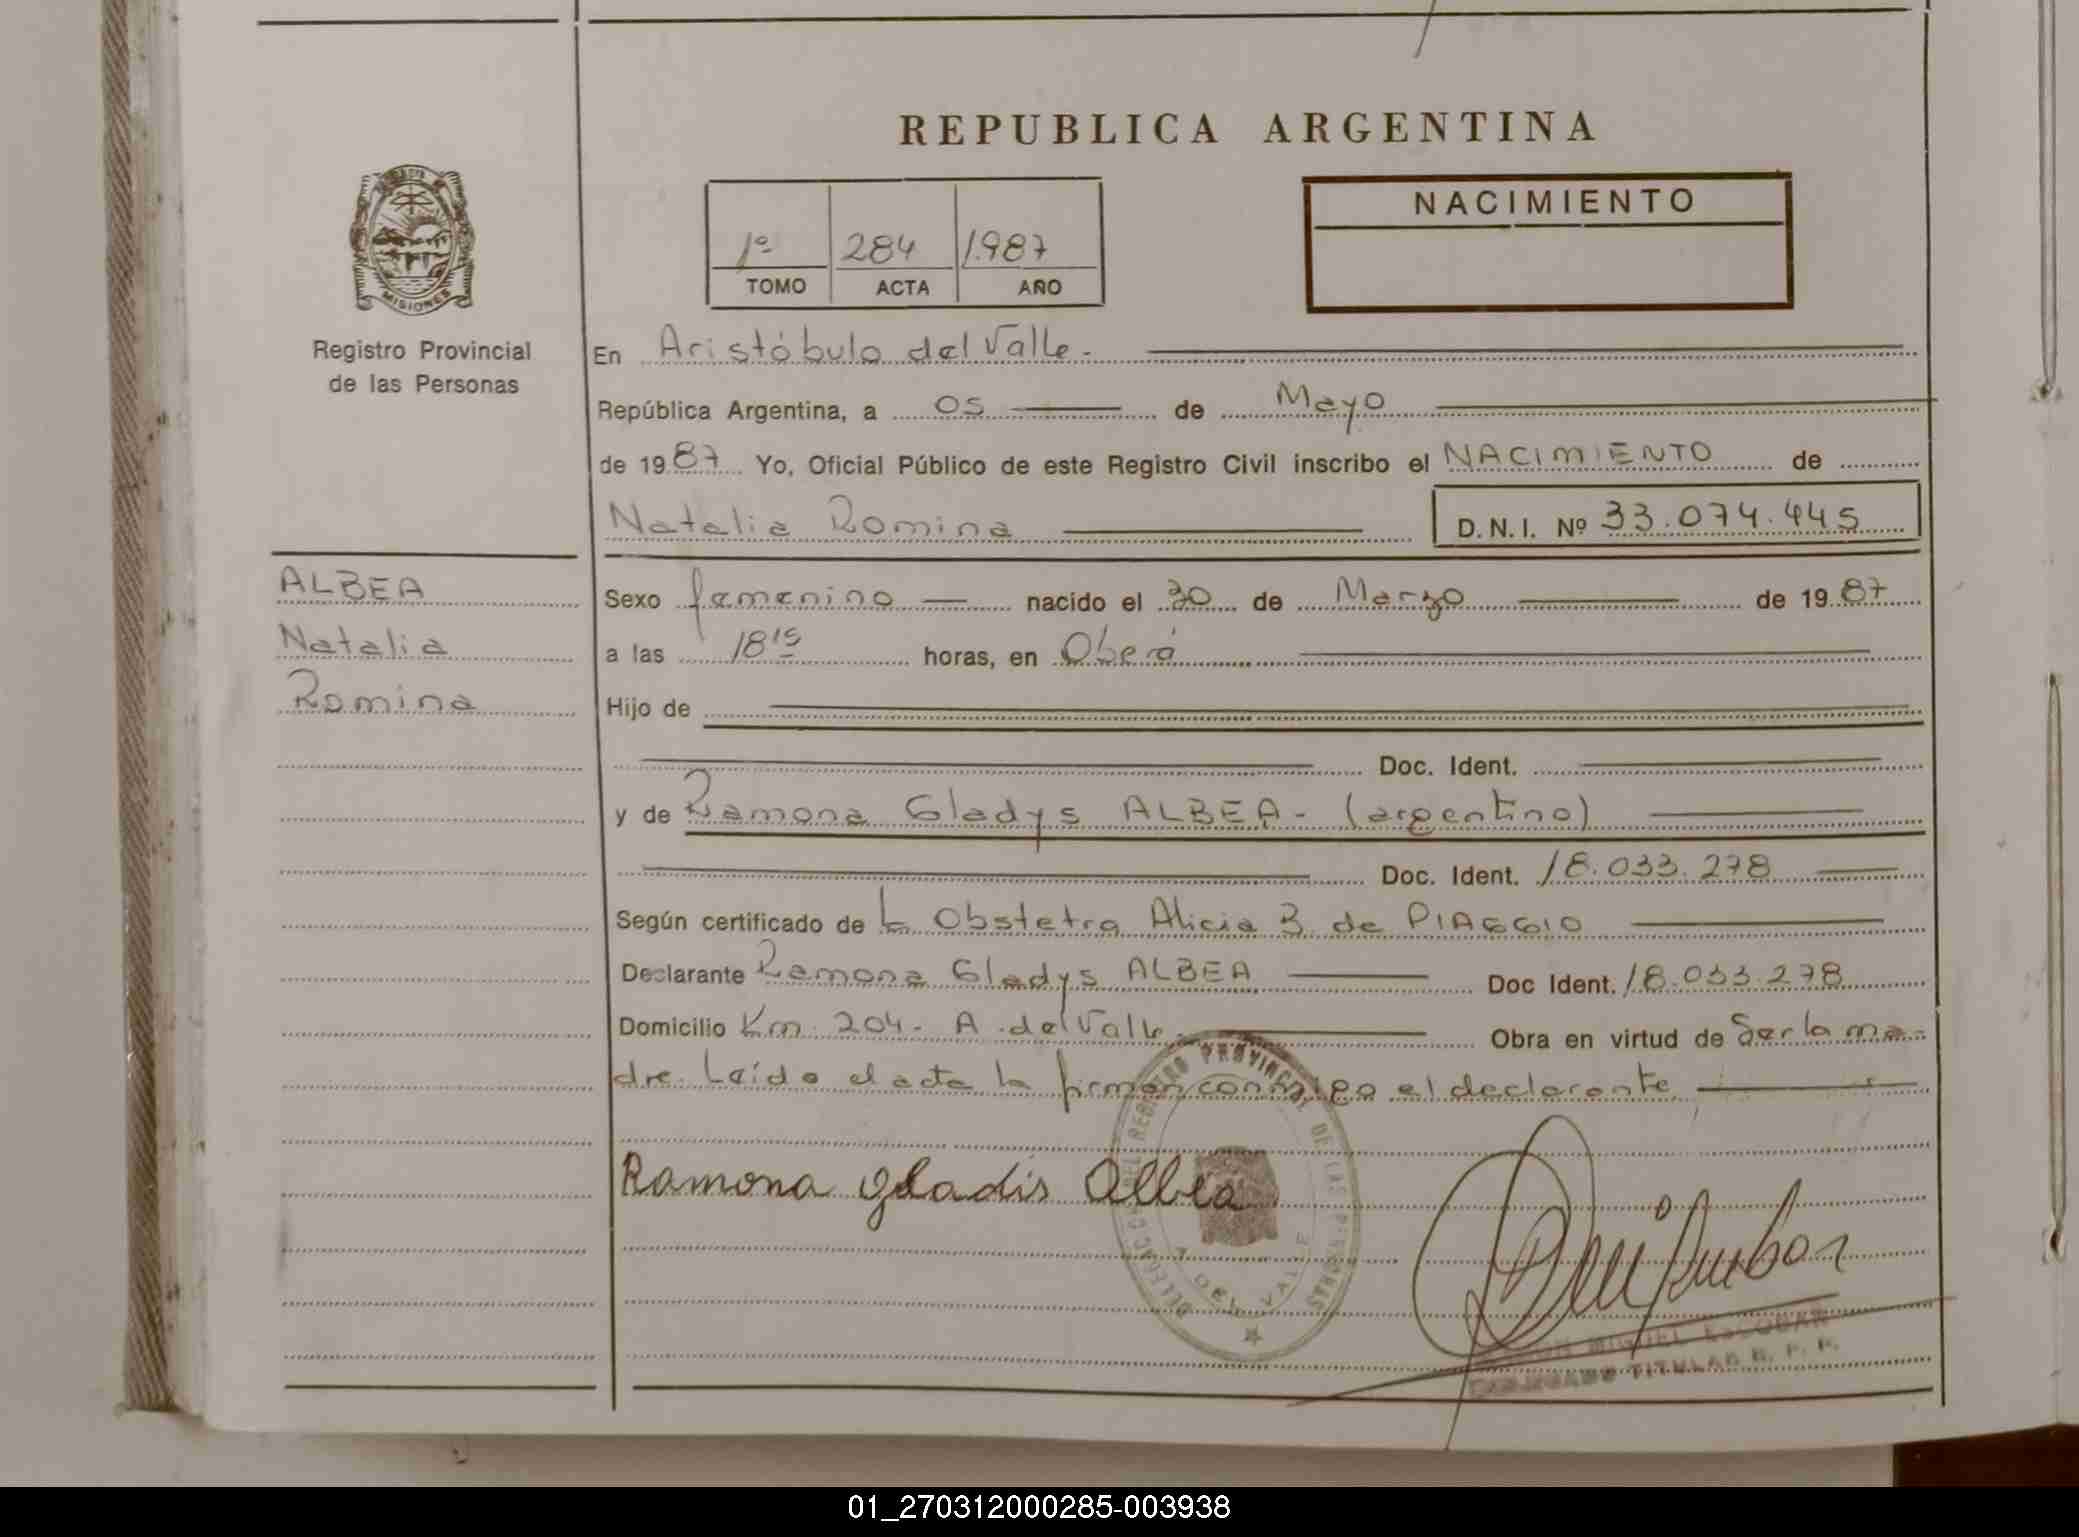 REPUBLICA ARGENTINA
NACIMIENTO
1º 284 1.987
TOMO ACTA AÑO
MISIONES
Registro Provincial
de las Personas
En Aristóbulo del Valle.-
República Argentina, a 05 de Mayo
de 1987 Yo, Oficial Público de este Registro Civil inscribo el NACIMIENTO de
Natalia Romina D.N.I. Nº 33.074.445
ALBEA
Natalia
Romina
Sexo femenino nacido el 30 de Marzo de 1987
a las 18 15 horas, en Oberá
Hijo de
Doc. Ident.
y de Ramona Gladys ALBEA - (argentino)
Doc. Ident. 18.033.278
Según certificado de la Obstetra Alicia B. de PIAGGIO
Declarante Ramona Gladys ALBEA Doc Ident. 18.033.278
Domicilio Km. 204 - A. del Valle. Obra en virtud de Ser la ma-
dre. Leído el acta la firman conmigo el declarante
Ramona gladis Albea
REGISTRO PROVINCIAL DE LAS PERSONAS
A. DEL VALLE
MIGUEL ESCOBAR
TITULAR R. P. P.
01_270312000285-003938